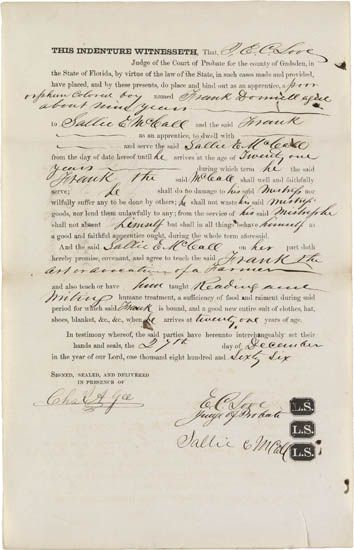 THIS INDENTURE WITNESSETH, That I, E. C. Love
Judge of the Court of Probate for the county of Gadsden, in
the State of Florida, by virtue of the law of the State, in such cases made and provided,
have placed, and by these presents, do place and bind out as an apprentice, a poor
orphan colored boy named Frank aged
about nine years
to Sallie E. McCall and the said Frank
as an apprentice, to dwell with
and serve the said Sallie E McCall
from the day of date hereof until he arrives at the age of Twenty one
years during which term he the said
Frank the said McCall shall well and faithfully
serve; he shall do no damage to his said Mistress nor
wilfully suffer any to be done by others; he shall not waste his said Mistress
goods, nor lend them unlawfully to any; from the service of his said Mistress he
shall not absent himself but shall in all things behave himself as
a good and faithful apprentice ought, during the whole term aforesaid.
And the said Sallie E. McCall on her part doth
hereby promise, covenant, and agree to teach the said Frank the
art or avocation of a Farmer
and also teach or have him taught Reading and
Writing humane treatment, a sufficiency of food and raiment during said
period for which said Frank is bound, and a good new entire suit of clothes, hat,
shoes, blanket, &c., &c., when he arrives at twenty one years of age.
In testimony whereof, the said parties have hereunto interchangeably set their
hands and seals, the 27th day of December
in the year of our Lord, one thousand eight hundred and Sixty Six
SIGNED, SEALED, AND DELIVERED
IN PRESENCE OF
Chas A Gee
E. C. Love L.S.
Judge of Probate L.S.
Sallie E McCall L.S.